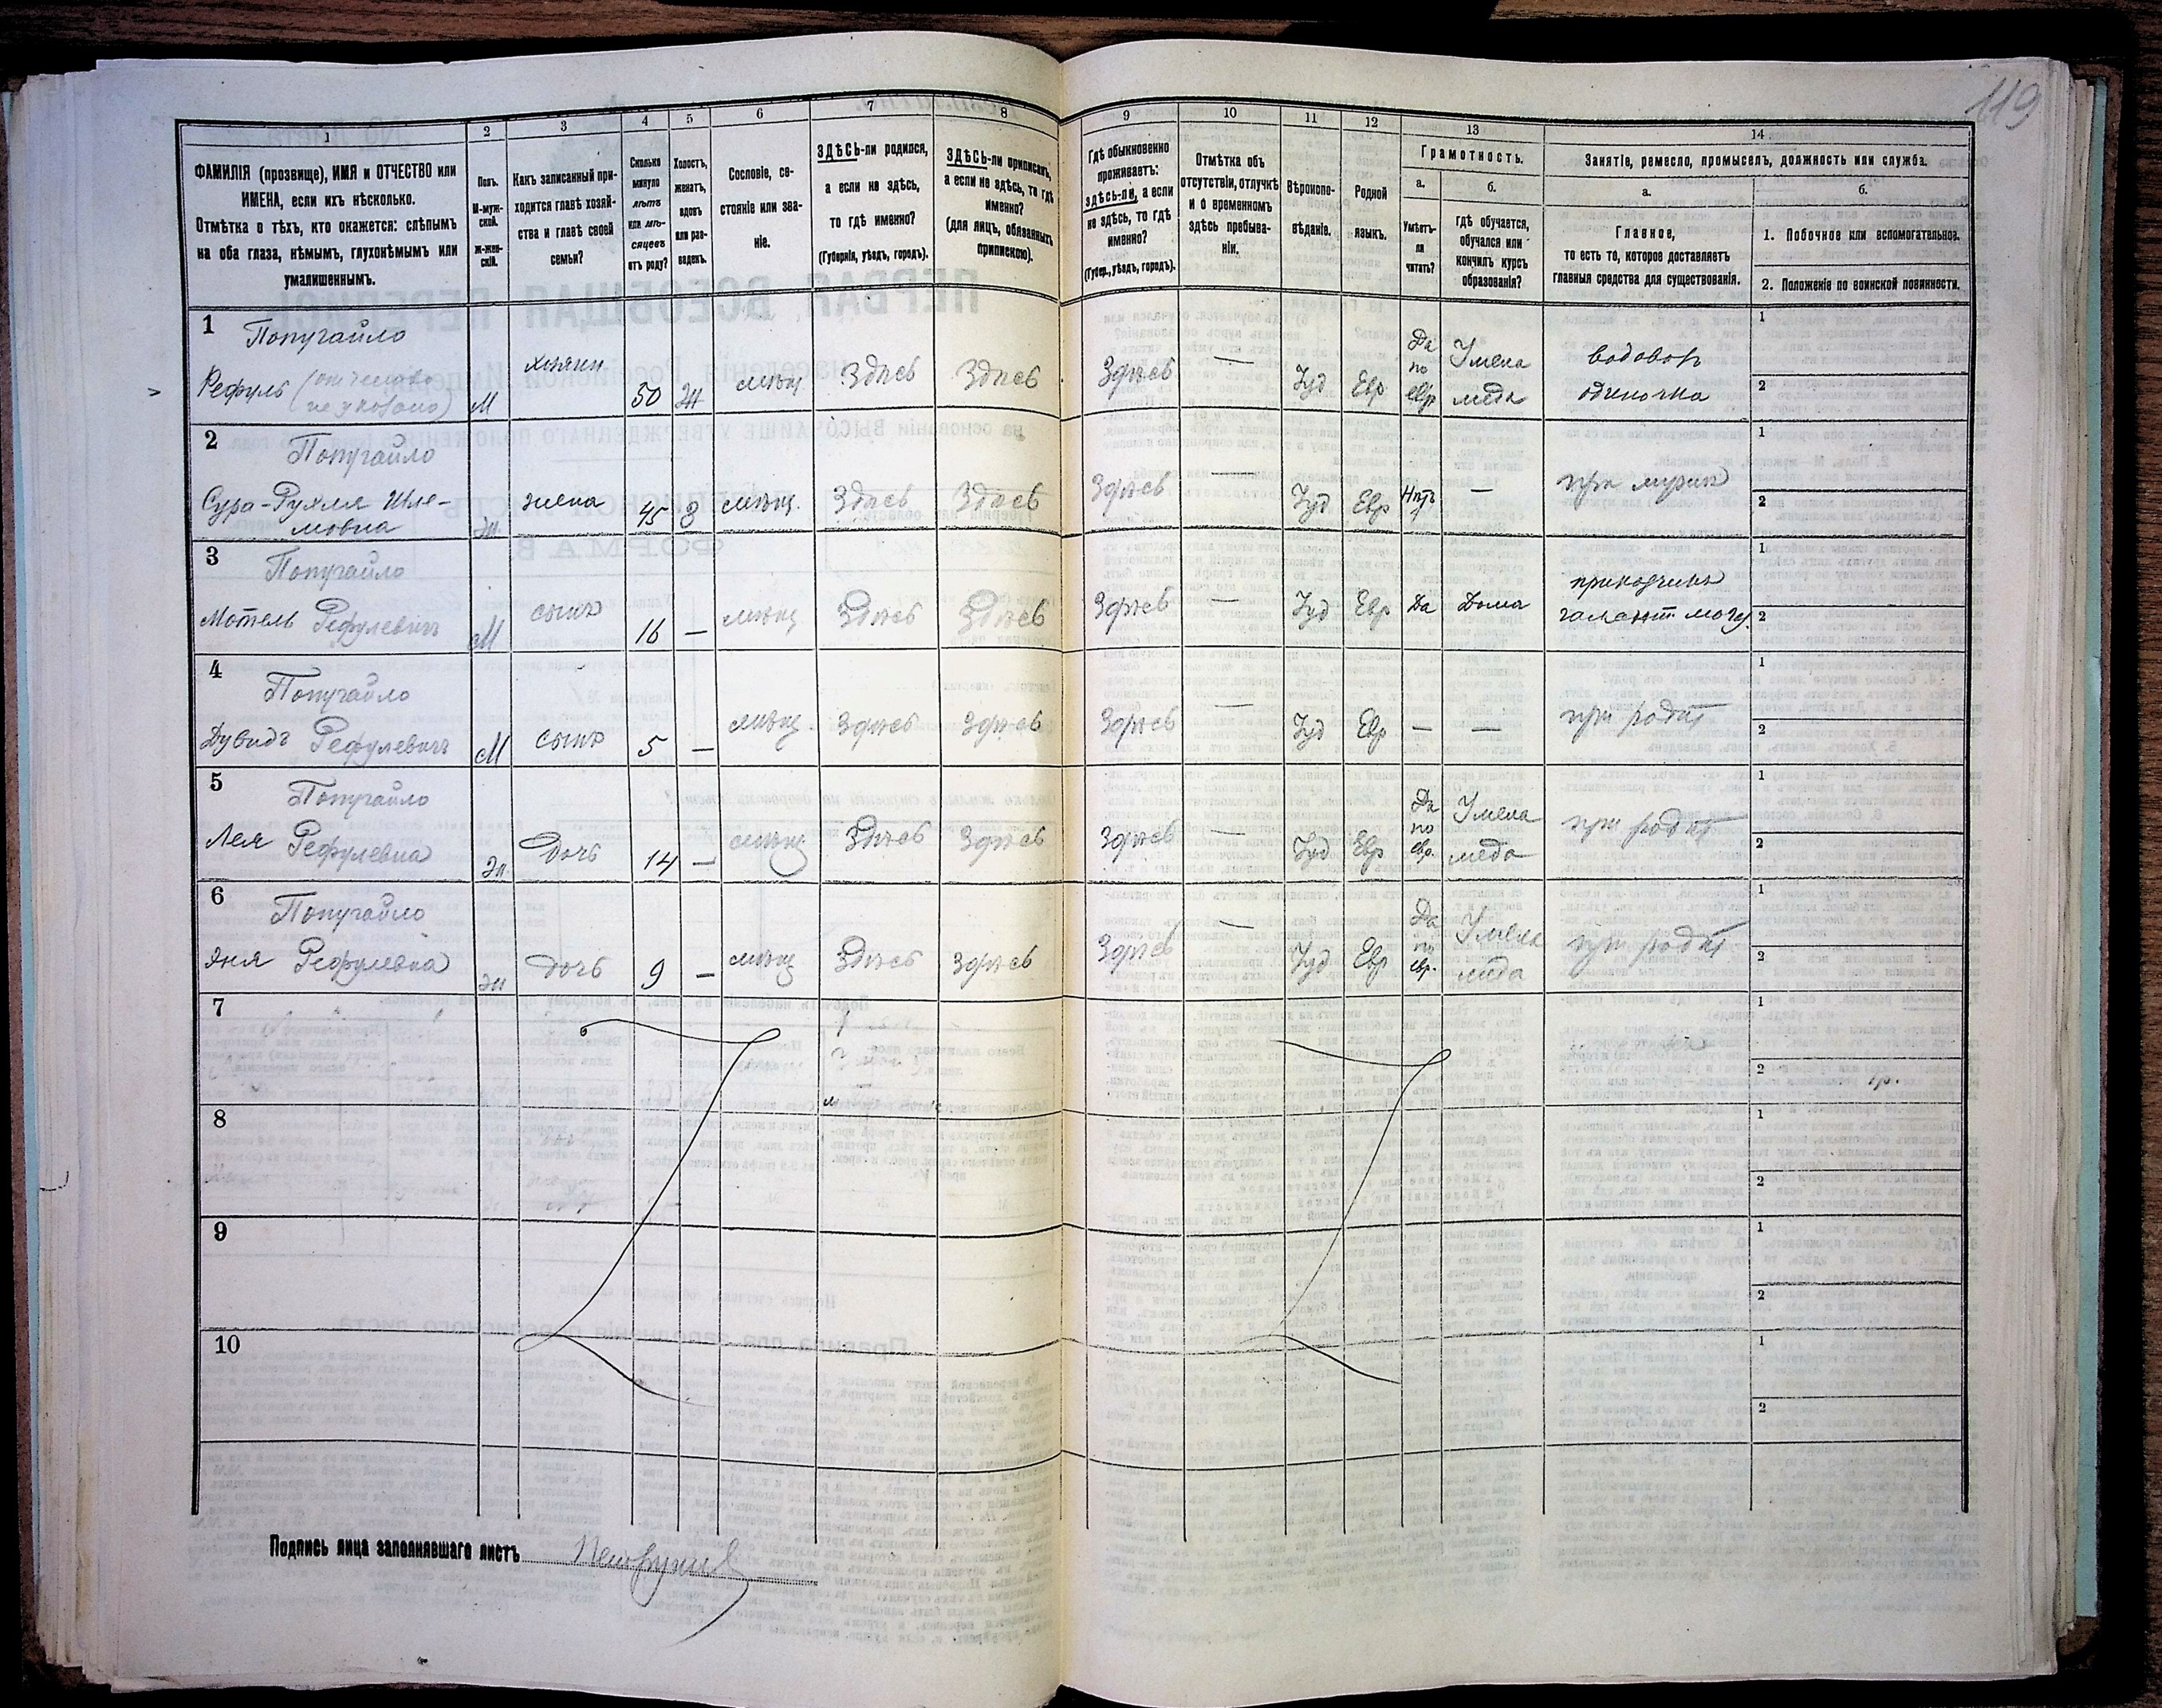 119
1
2
3
4
5
6
7
8
9
10
11
12
13
14
ФАМИЛІЯ (прозвище), ИМЯ и ОТЧЕСТВО или
ИМЕНА, если ихъ нѣсколько.
Отмѣтка о тѣхъ, кто окажется: слѣпымъ
на оба глаза, нѣмымъ, глухонѣмымъ или
умалишеннымъ.
Полъ.
М-муж-
ской.
Ж-жен-
скій.
Какъ записанный при-
ходится главѣ хозяй-
ства и главѣ своей
семьи?
Сколько
минуло
лѣтъ
или мѣ-
сяцевъ
отъ роду?
Холостъ,
женатъ,
вдовъ
или раз-
веденъ.
Сословіе, со-
стояніе или зва-
ніе.
ЗДѢСЬ-ли родился,
а если не здѣсь,
то гдѣ именно?
(Губернія, уѣздъ, городъ).
ЗДѢСЬ-ли приписанъ,
а если не здѣсь, то гдѣ
именно?
(для лицъ, обязанныхъ
припискою).
Гдѣ обыкновенно
проживаетъ:
здѣсь-ли, а если
не здѣсь, то гдѣ
именно?
(Губер., уѣздъ, городъ).
Отмѣтка объ
отсутствіи, отлучкѣ
и о временномъ
здѣсь пребыва-
ніи.
Вѣроиспо-
вѣданіе.
Родной
языкъ.
Грамотность.
а.
Умѣетъ-
ли
читать?
б.
гдѣ обучается,
обучался или
кончилъ курсъ
образованія?
Занятіе, ремесло, промыселъ, должность или служба.
а.
Главное,
то есть то, которое доставляетъ
главныя средства для существованія.
б.
1. Побочное или вспомогательное.
2. Положеніе по воинской повинности.
1 Попугайло
Рефуль (отчество
не указано) М хозяинъ 50 Ж мѣщ Здѣсь Здѣсь Здѣсь — Іуд Евр Да по евр У мела
меда водовозъ
одиночка 1
2
2 Попугайло
Сура-Рухля Шле-
мовна Ж жена 45 З мѣщ. Здѣсь Здѣсь Здѣсь — Іуд Евр Нѣтъ — при мужѣ 1
2
3 Попугайло
Мотель Рефулевичъ М сынъ 16 — мѣщ Здѣсь Здѣсь Здѣсь — Іуд Евр Да Дома приказчикъ
галант. 1
2
4 Попугайло
Дувидъ Рефулевичъ М сынъ 5 — мѣщ. Здѣсь Здѣсь Здѣсь — Іуд Евр — — при родит 1
2
5 Попугайло
Лея Рефулевна Ж дочь 14 — мѣщ Здѣсь Здѣсь Здѣсь — Іуд Евр Да по евр. У мела
меда при родит 1
2
6 Попугайло
Яня Рефулевна Ж дочь 9 — мѣщ Здѣсь Здѣсь Здѣсь — Іуд Евр Да по евр. У мела
меда при родит 1
2
7 1
2
8 1
2
9 1
2
10 1
2
Подпись лица заполнявшаго листъ